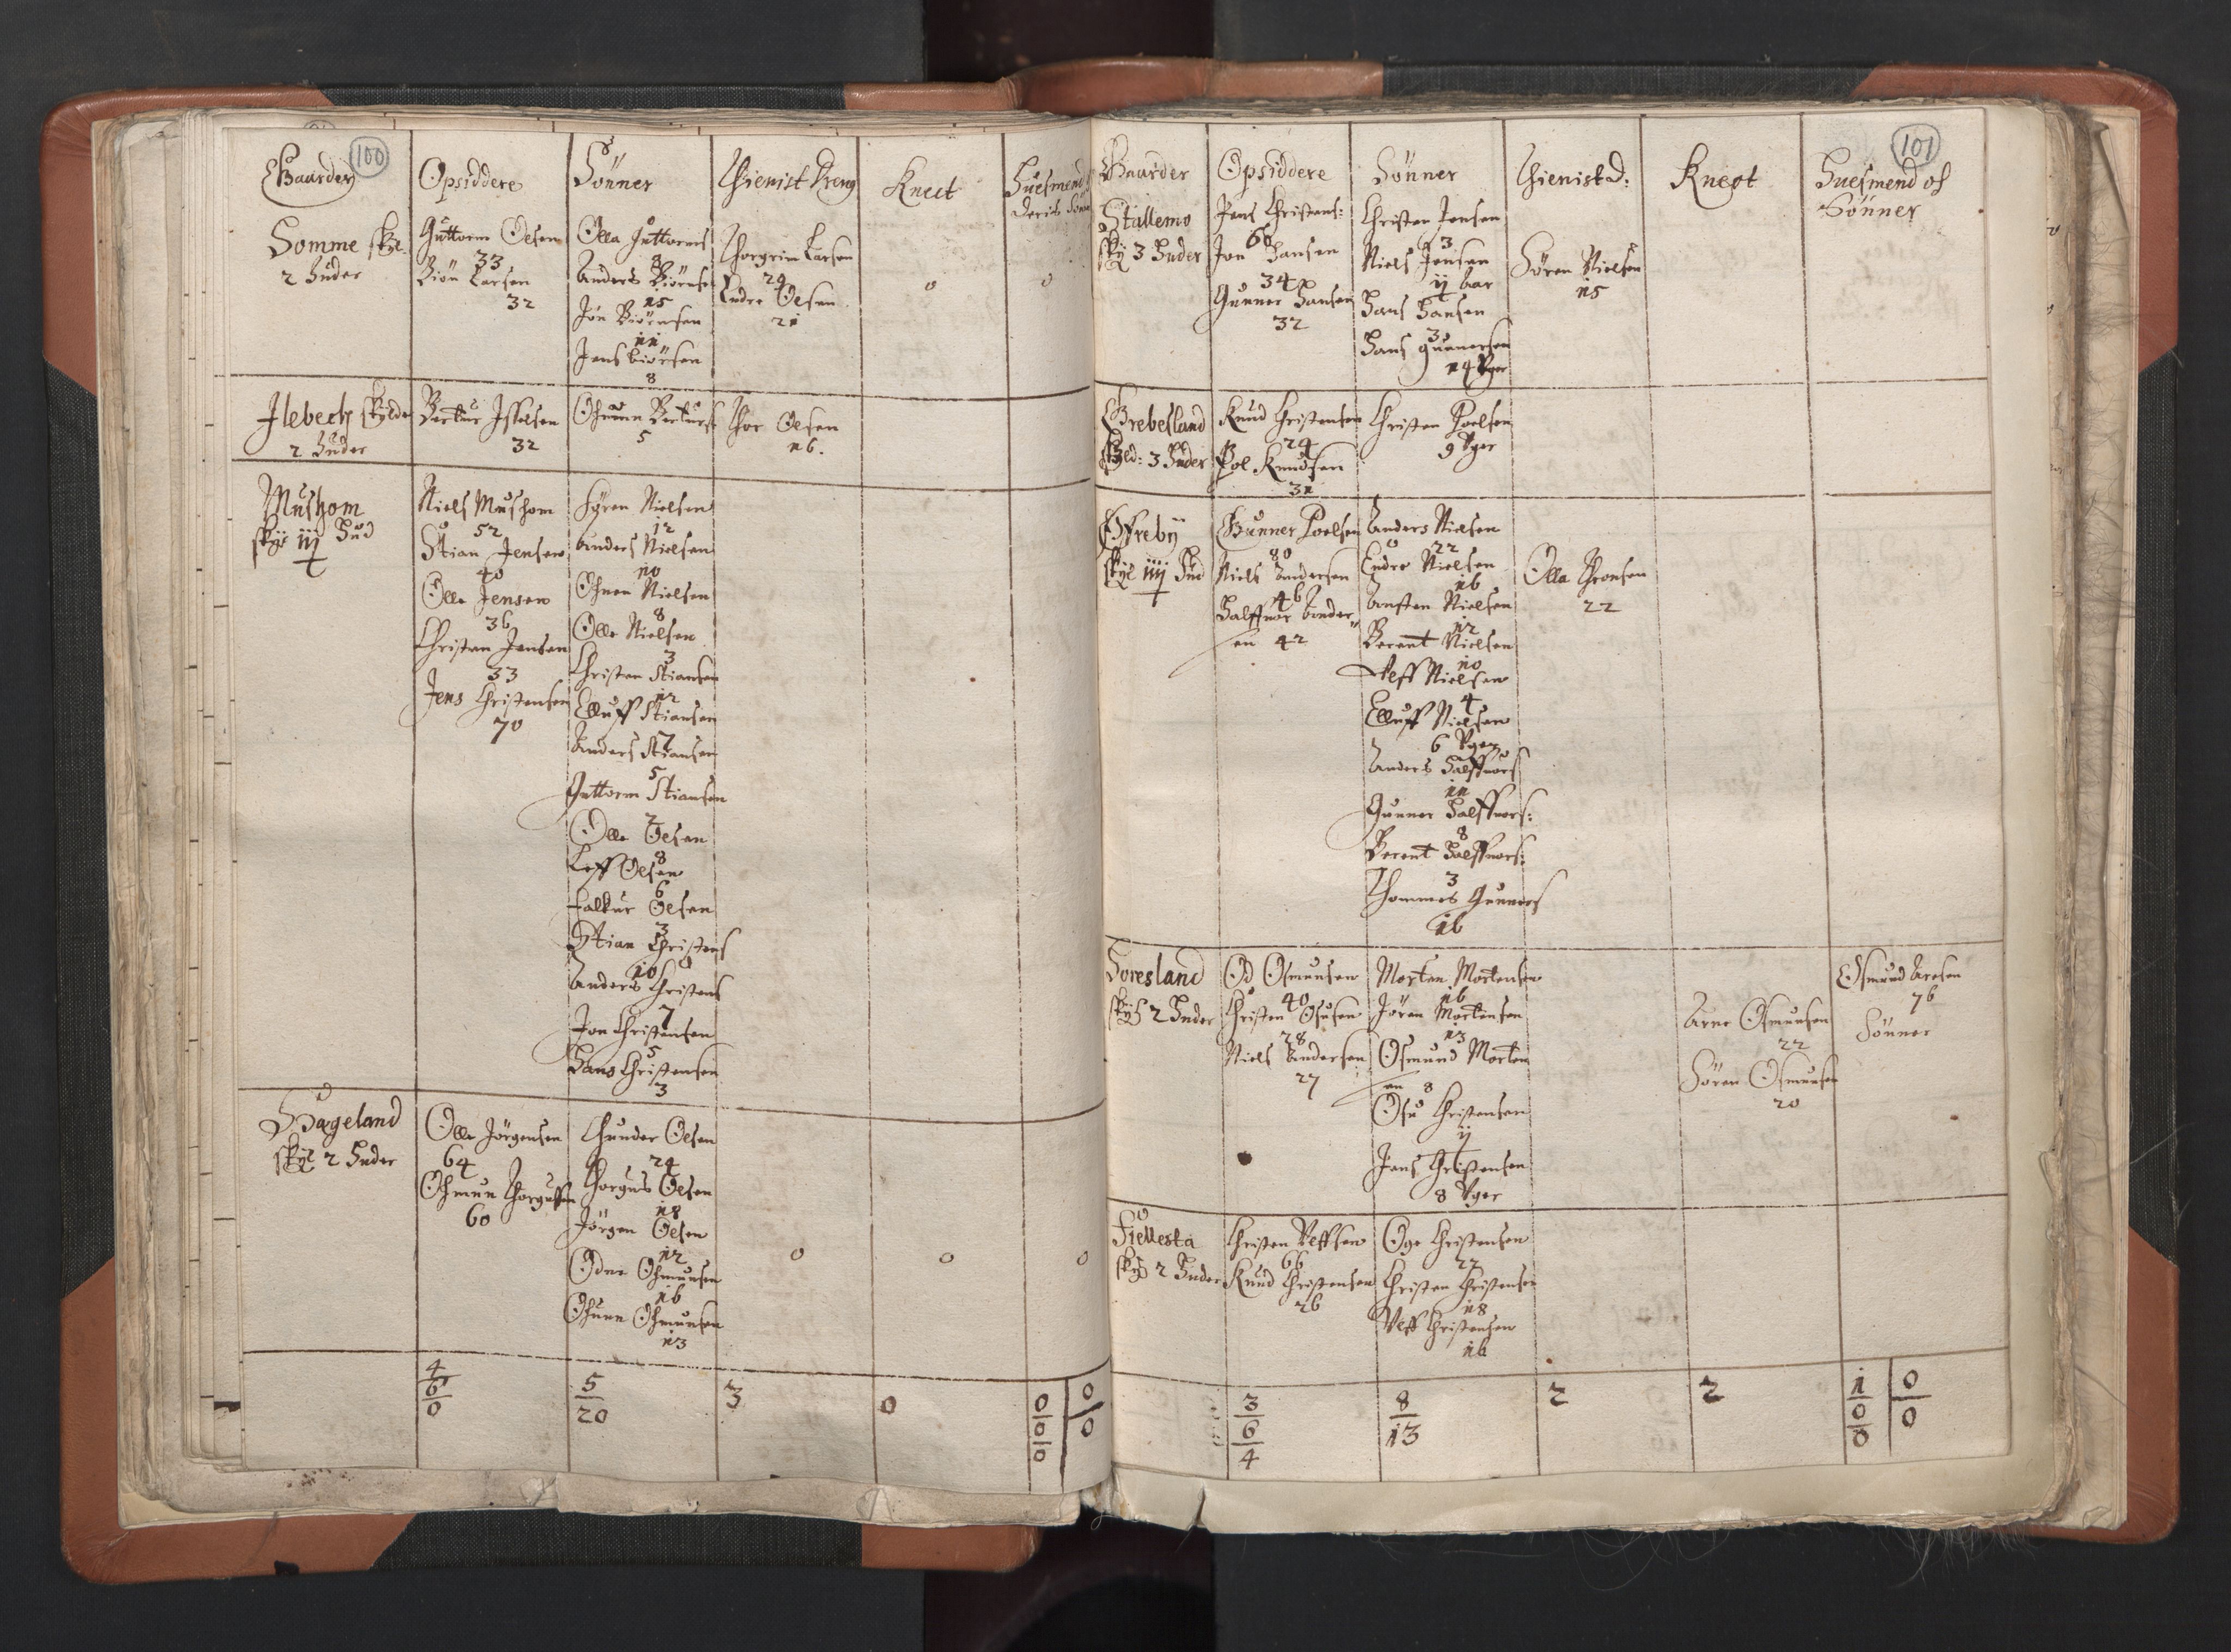 100
Gaarder
Opsiddere
Sönner
Thienist Dreng
Knect
Huesmend
Deris Sönner
Somme skyl
2 Huder
Guttorm Olsen
33
Biön Larsen
32
Olla Guttorms
8
Anders Biörns
15
Jön Biörnsen
11
Jens biörsen
8
Thorgrim Larsen
24
Endre Olsen
21
0
0
Ilebeck skylder
2 Huder
32
5
Thor Olsen
16.
Mushom
skyl iij Hud
Niels Mushom
52
Stian Jensen
40
Olle Jensen
36
Christen Jensen
33
Jens Christensen
70
Sören Nielsen
12
Anders Nielsen
10
Nielsen
8
Olle Nielsen
3
Christen Stiansen
12
Elluff Stiansen
7
Anders Stiansen
5
Guttorm Stiansen
2
Olle Olsen
8
Leff Olsen
6
Falkur Olsen
3
Stian Christens
10
Anders Christens
7
Jon Christensen
5
Hans Christensen
3
Hageland
skyl 2 Huder
Olle Jörgensen
64
Ohmun Thorgussen
60
Gunder Olsen
24
Thorgus Olsen
18
Jörgen Olsen
12
Odne Ohmunsen
16
Ohmunsen
13
0
0
0
4
6
0
5
20
3
0
0
0
0
0
0
101
Gaarder
Opsiddere
Sönner
Thienist d:
Knegt
Huesmend oc
Sönner
Stallemo
sky 3 Huder
Jens Christens:
60
Jon Hansen
34
Gunner Hansen
32
Christen Jensen
3
Niels Jensen
ij aar
Hans Hansen
3
Hans gunnersen
14 Vger
Sören Nielsen
15
Grebesland
skyld: 3 Huder
Knud Christensen
24
Pol Knudsen
31
Christen Poelsen
9 Vger
Øffreby
skyl iiij Hud
Gunner Poelsen
80
Niels Andersen
46
Halffuor Anders
en 42
Anders Nielsen
22
Endre Nielsen
16
Nielsen
12
Berent Nielsen
10
Nielsen
4
Elluff Nielsen
6 Vger
Anders Halffuors
11
Gunner Halffuors:
8
Berent Halffuors:
3
Thommes Gunners
16
Olla
22
Horesland
skyl 2 Huder
Od Osmunsen
40
Christen Osusen
28
Niels Andersen
27
Morten Mortensen
16
Jören Mortensen
13
Osmund Morten
sen 8
Osu Christensen
ij
Jens Christensen
8 Vger
Arne Osmunsen
22
Sören Osmunsen
20
Osmund Aresen
76
Sönner
Fiellesta
skyl 2 Huder
Christen Veffsen
66
Knud Christensen
26
Oge Christensen
22
Christen Christensen
18
Veff Christensen
16
3
6
4
8
13
2
2
1
0
0
0
0